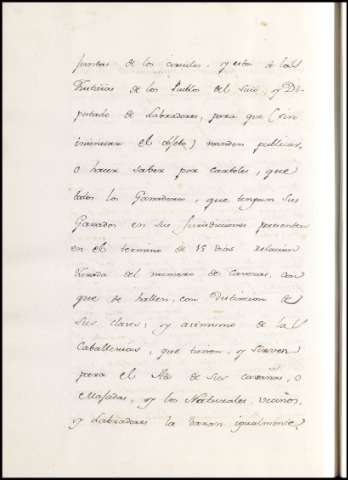 juntas de los circulos, y esta de las
Justicias de los Pueblos del suio, y Di-
putado de Labradores, para que (sin
insinuar el objeto) manden publicar,
o hacer saber por carteles, que
todos los Ganaderos, que tengan sus
Ganados en sus Jurisdicciones presenten
en el termino de 15 dias relacion
Jurada del numero de Cavezas, con
que se hallen, con distincion de
sus clases; y asimismo de las
Caballerias, que tienen, y sirven
para el Ato de sus cavañas, o
Majadas, y los Naturales, vecinos,
y Labradores la daran igualmente